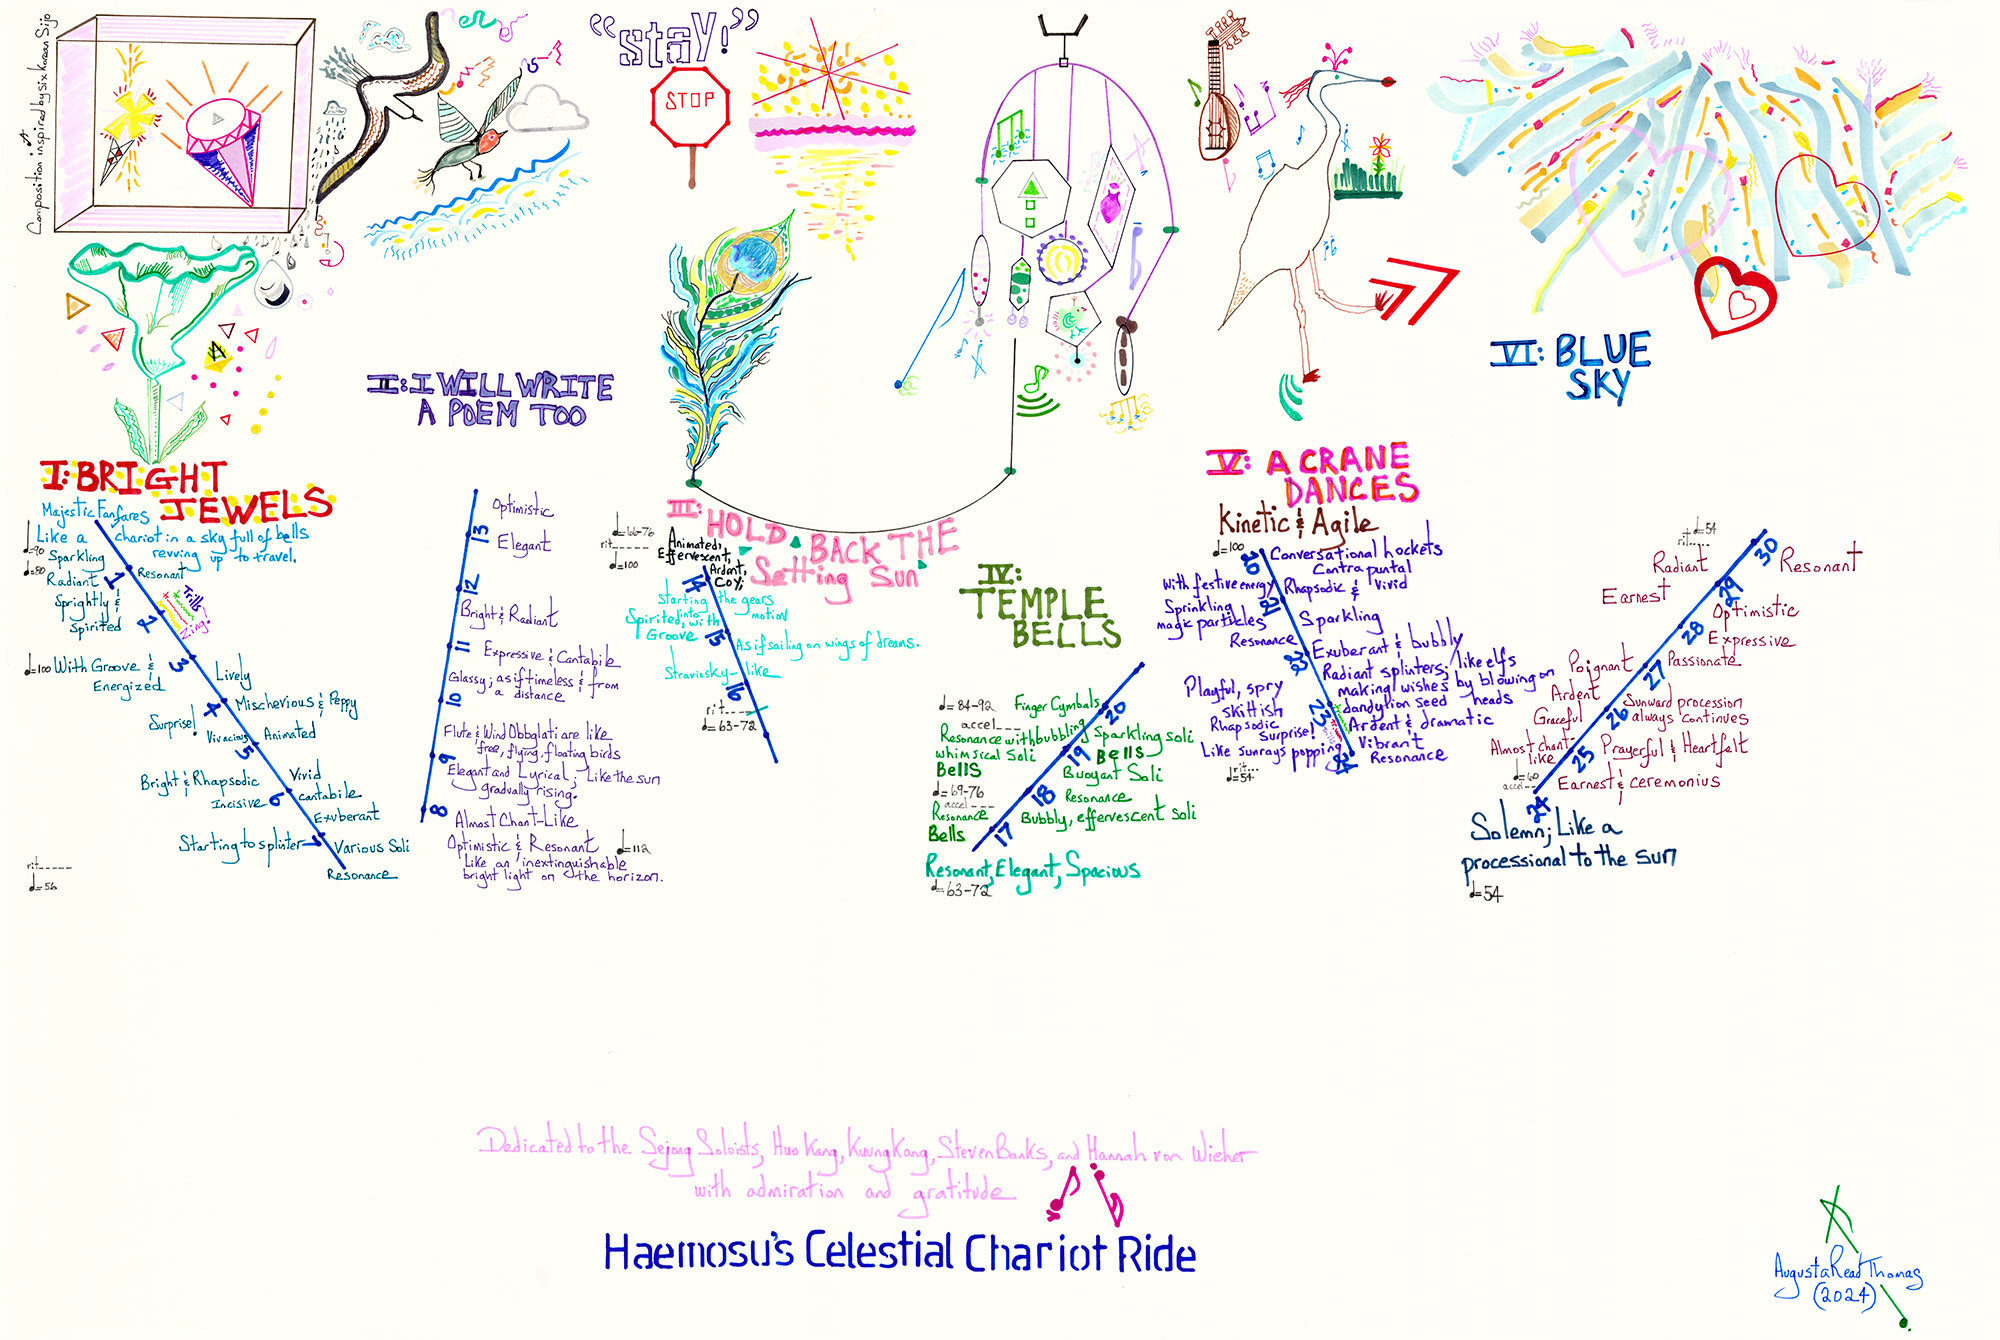 A
Composition inspired by six Korean Sijo
"stay!"
STOP
I: BRIGHT
JEWELS
Majestic Fanfares
Like a chariot in a sky full of bells
revving up to travel.
♩=90
Sparkling
♩=80
Radiant
Resonant
1
Sprightly &
Spirited
Trills
Zing!
2
♩=100 With Groove &
Energized
3
Lively
Mischevious & Peppy
4
Surprise!
Vivacious
Animated
5
Bright & Rhapsodic
Vivid
Incisive
cantabile
6
Exuberant
Starting to splinter
7
Various Soli
Resonance
rit.
♩=56
II: I WILL WRITE
A POEM TOO
Optimistic
13
Elegant
12
Bright & Radiant
11
Expressive & Cantabile
Glassy; as if timeless & from
a distance
10
Flute & Wind Obbglati are like
free, flying, floating birds
9
Elegant and Lyrical; Like the sun
gradually rising.
8
Almost Chant-Like
Optimistic & Resonant ♩=112
Like an inextinguishable
bright light on the horizon.
III: HOLD BACK THE
Setting Sun
♩=66-76
rit.
♩=100
Animated,
Effervescent,
Ardent,
Coy;
14
Starting the gears
into motion
Spirited, with
Groove
15
As if sailing on wings of dreams.
Stravinsky-like
16
rit.
♩=63-72
IV:
TEMPLE
BELLS
♩=84-92
Finger Cymbals
20
accel
Resonance with bubbling
Sparkling soli
whimsical Soli
19
Bells
Bells
Buoyant Soli
♩=69-76
accel
18
Resonance
Resonance
Bubbly, effervescent Soli
Bells
17
Resonant, Elegant, Spacious
♩=63-72
V: A CRANE
DANCES
Kinetic & Agile
♩=100
Conversational hockets
Contrapuntal
With festive energy
Rhapsodic & Vivid
21
Sprinkling
magic particles
Sparkling
Resonance
22
Exuberant & bubbly
Radiant splinters; like elfs
making wishes by blowing on
dandylion seed heads
Playful, spry
skittish
23
Ardent & dramatic
Rhapsodic
Surprise!
Vibrant
Like sunrays popping
Resonance
24
rit.
♩=54
VI: BLUE
SKY
♩=54
rit.
30
Radiant
Resonant
29
Earnest
Optimistic
28
Expressive
Poignant
Passionate
27
Ardent
Sunward procession
always continues
Graceful
26
Almost chant-
like
Prayerful & Heartfelt
25
♩=60
accel
Earnest & ceremonius
24
Solemn; Like a
processional to the sun
♩=54
Dedicated to the Sejong Soloists, Huo Kang, Kyung Kang, Steven Banks, and Hannah von Wiehler
with admiration and gratitude
Haemosu's Celestial Chariot Ride
Augusta Read Thomas
(2024)